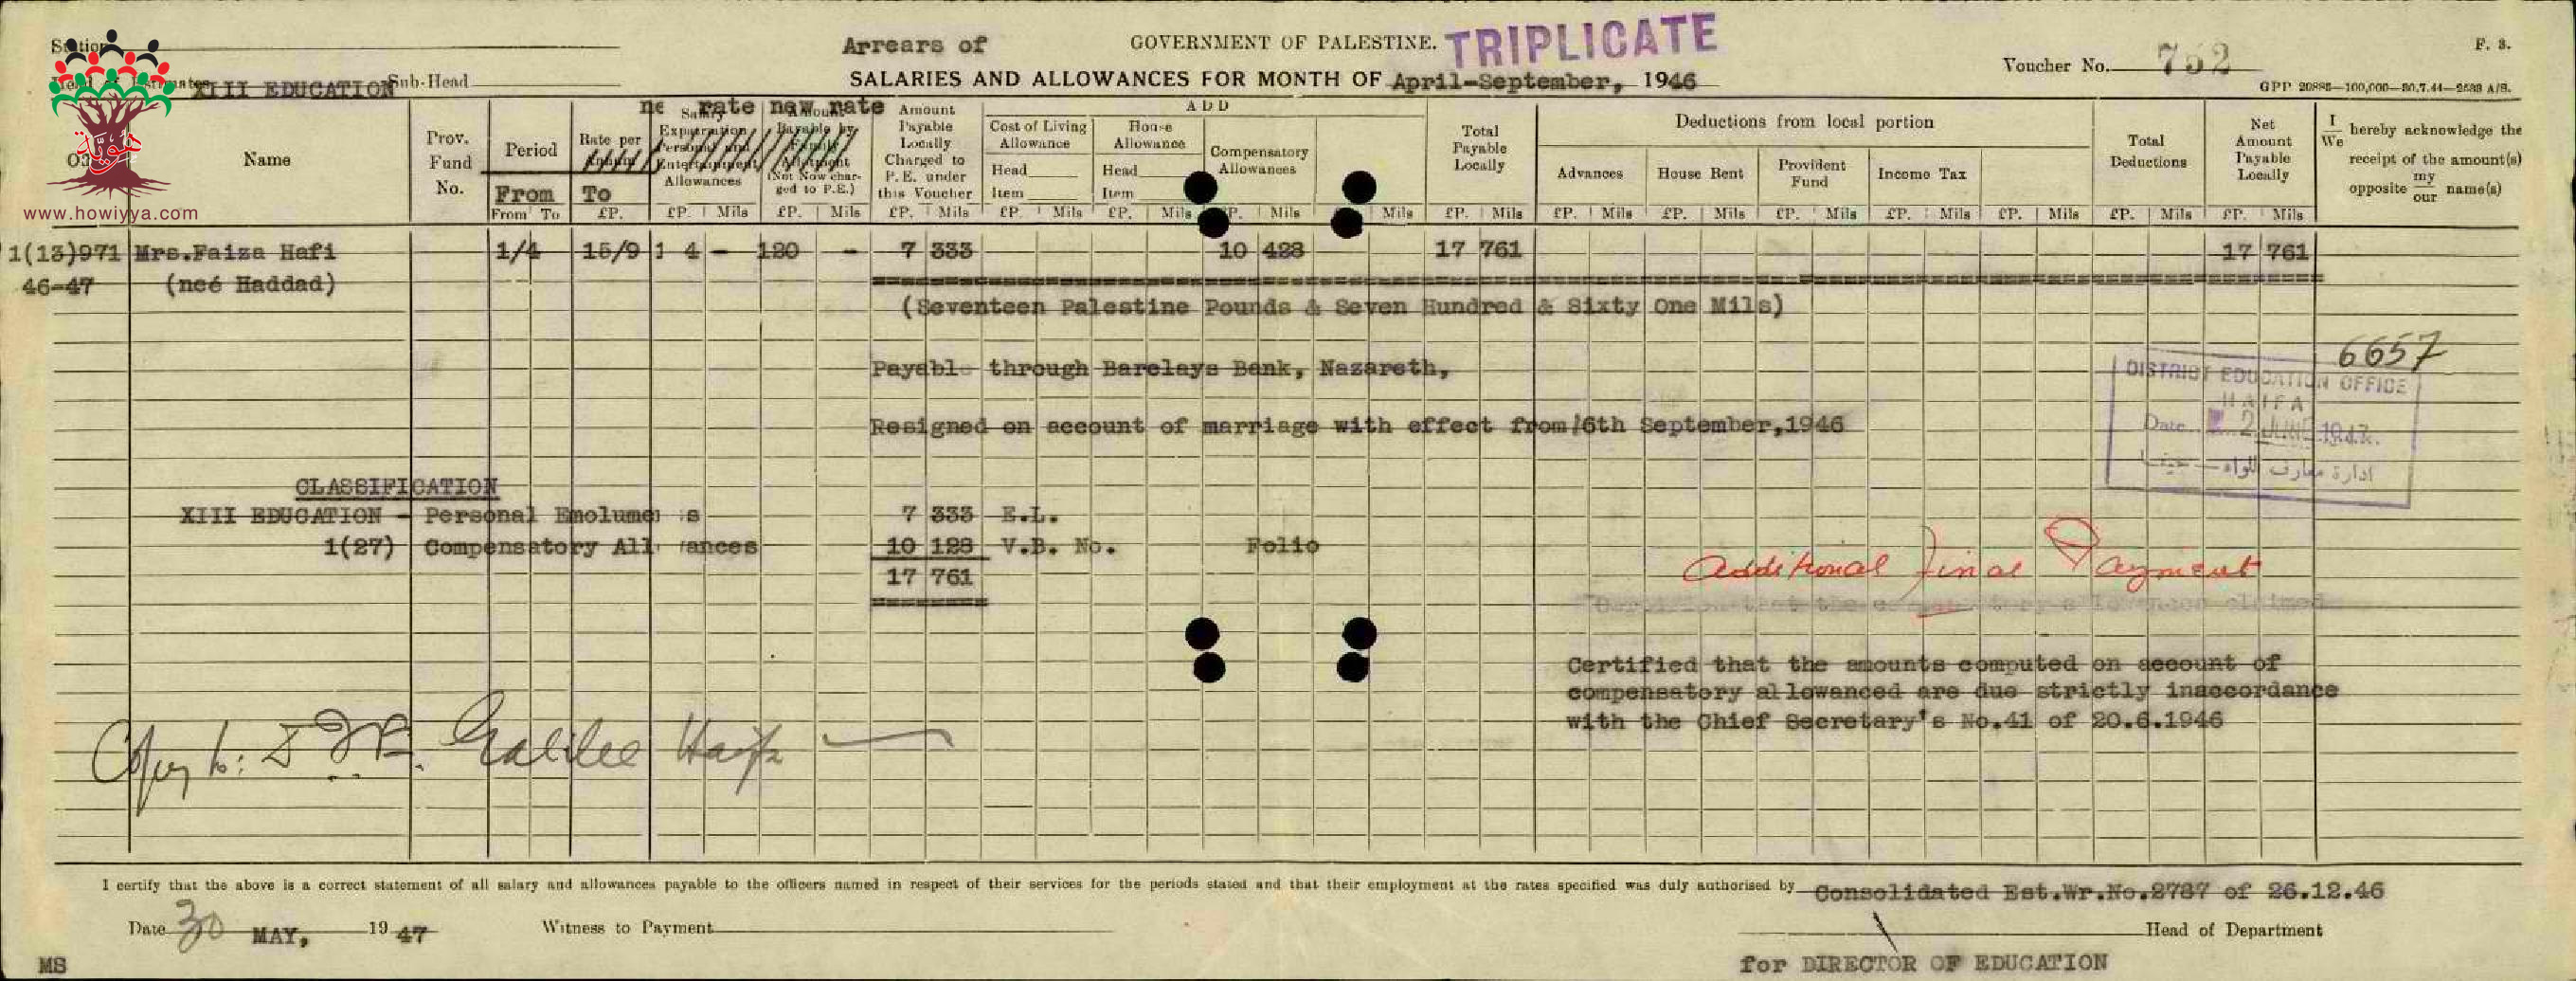 Station
Arrears of
GOVERNMENT OF PALESTINE.
TRIPLICATE
F. 3.
Voucher No. 752
XIII EDUCATION
Sub-Head
SALARIES AND ALLOWANCES FOR MONTH OF April-September, 1946
GPP 20885—100,000—30.7.44—2533 A/S.
هوية
www.howiyya.com
Name
Prov. Fund No.
Period
From
From To
Rate per Annum
To
£P.
rate
Salary Expatriation Personal and Entertainment Allowances
£P. Mils
new rate
Amount Payable by Family Allotment (Not Now charged to P.E.)
£P. Mils
Amount Payable Locally Charged to P.E. under this Voucher
£P. Mils
ADD
Cost of Living Allowance
Head
Item
£P. Mils
House Allowance
Head
Item
£P. Mils
Compensatory Allowances
P. Mils
Mils
Total Payable Locally
£P. Mils
Deductions from local portion
Advances
£P. Mils
House Rent
£P. Mils
Provident Fund
£P. Mils
Income Tax
£P. Mils
£P. Mils
Total Deductions
£P. Mils
Net Amount Payable Locally
£P. Mils
I
We hereby acknowledge the
receipt of the amount(s)
opposite my
our name(s)
1(13)971 Mrs.Faiza Hafi 1/4 15/9 1 4 - 120 - 7 333 10 428 17 761 17 761
46-47 (neé Haddad)
(Seventeen Palestine Pounds & Seven Hundred & Sixty One Mils)
6657
Payable through Barclays Bank, Nazareth,
DISTRICT EDUCATION OFFICE
HAIFA
Date 2 JUNE 1947.
ادارة معارف اللواء — حيفا
Resigned on account of marriage with effect from 16th September,1946
CLASSIFICATION
XIII EDUCATION - Personal Emolume s 7 333 E.L.
1(27) Compensatory All ances 10 128 V.B. No. Folio
17 761
Additional Final Payment
Certified that the amounts computed on account of
compensatory allowanced are due strictly inaccordance
with the Chief Secretary's No.41 of 20.6.1946
Copy to: Galilee Haifa
I certify that the above is a correct statement of all salary and allowances payable to the officers named in respect of their services for the periods stated and that their employment at the rates specified was duly authorised by Consolidated Est.Wr.No.2787 of 26.12.46
Date 30 MAY, 19 47
Witness to Payment
Head of Department
MS
for DIRECTOR OF EDUCATION